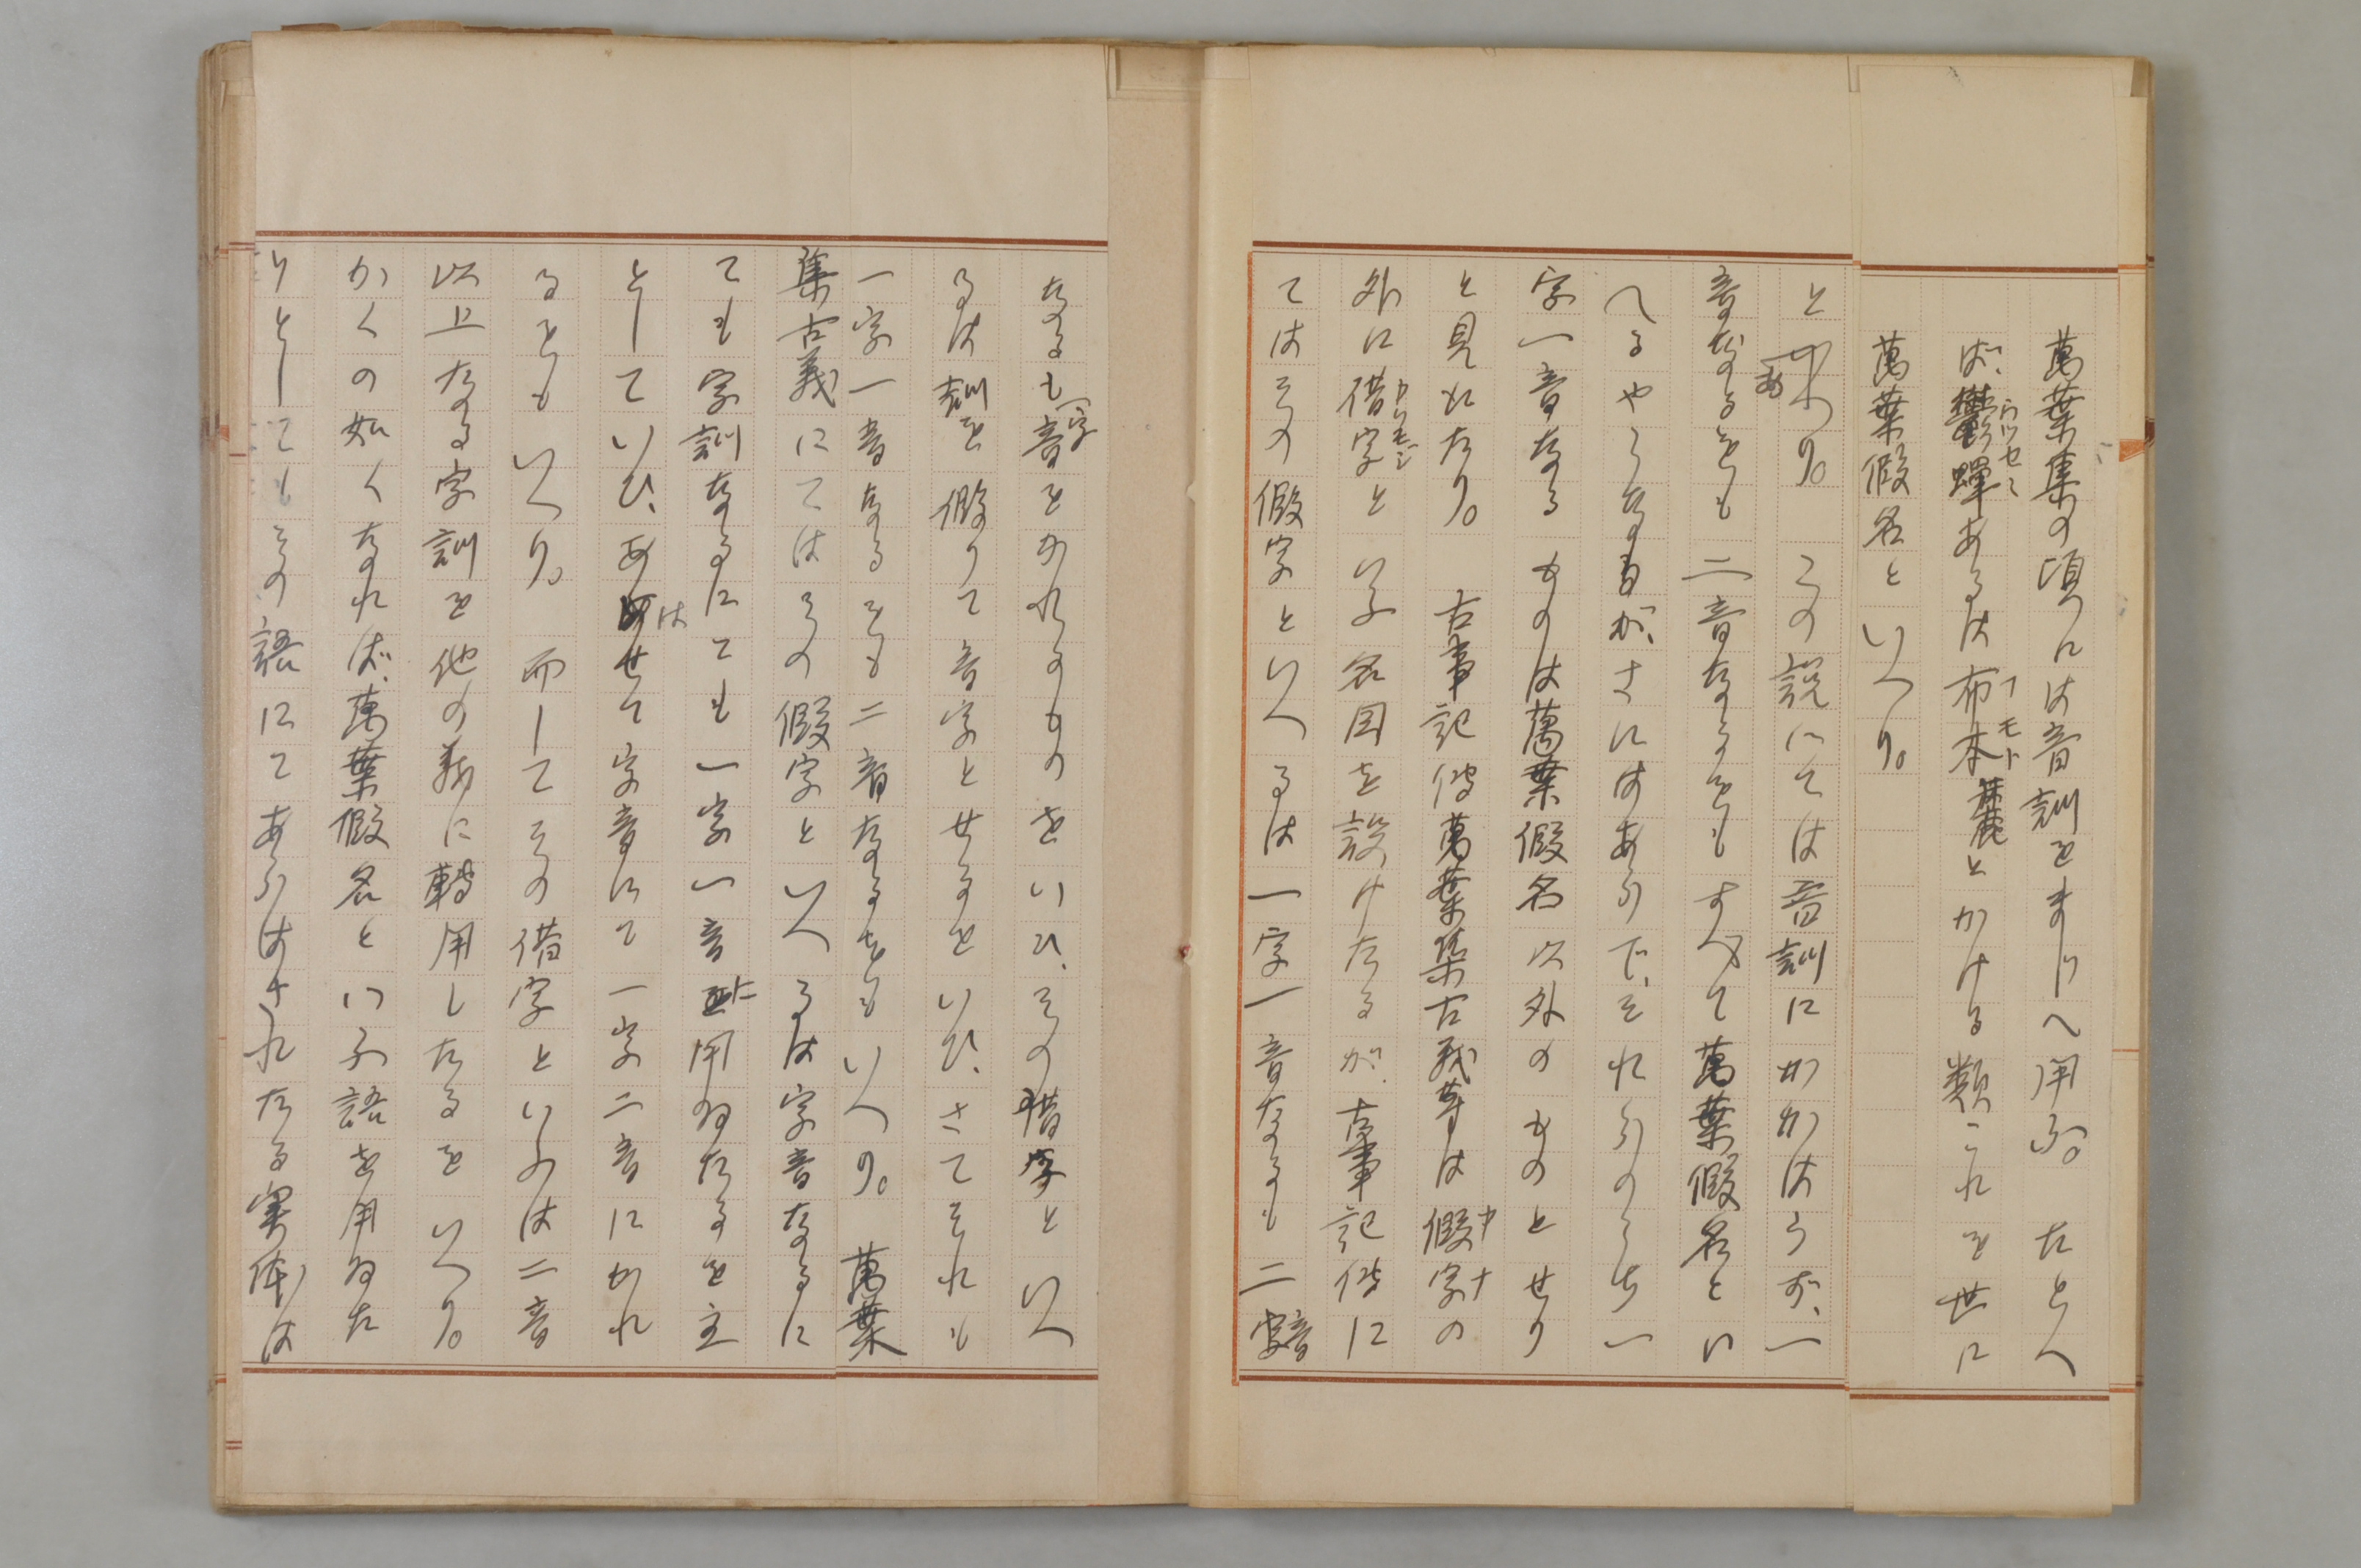 萬葉集の頃には音訓をまじへ用ふ。たとへ
ば、鬱蟬あるは布本麓とかける類これを世に
萬葉假名といへり。
とあり。この説にては音訓にかかはらず、一
音なるをも二音なるをもすべて萬葉假名とい
へるやうなるが、さにはあらで、それらのうち一
字一音なるものは萬葉假名以外のものとせり
と見れたり。古事記傳萬葉集古義等は假字の
外に借字といふ名目を設けたるが、古事記傳に
てはその假字といへるは一字一音なるも二音
なるも字音をかれるものをいひ、その借字といへ
るは訓を假りて音字とせるをいひ、さてそれも
一字一音なるをも二音なるをもいへり。萬葉
集古義にてはその假字といへるは字音なるに
ても字訓なるにても一字一音に用ゐたるを主
としていひ、あはせて字音にて一字二音にかれ
るをもいへり。而してその借字といふは二音
以上なる字訓を他の義に轉用したるをいへり。
かくの如くなれば、萬葉假名といふ語を用ゐた
りとしてもその語にてあらはされたる実体は